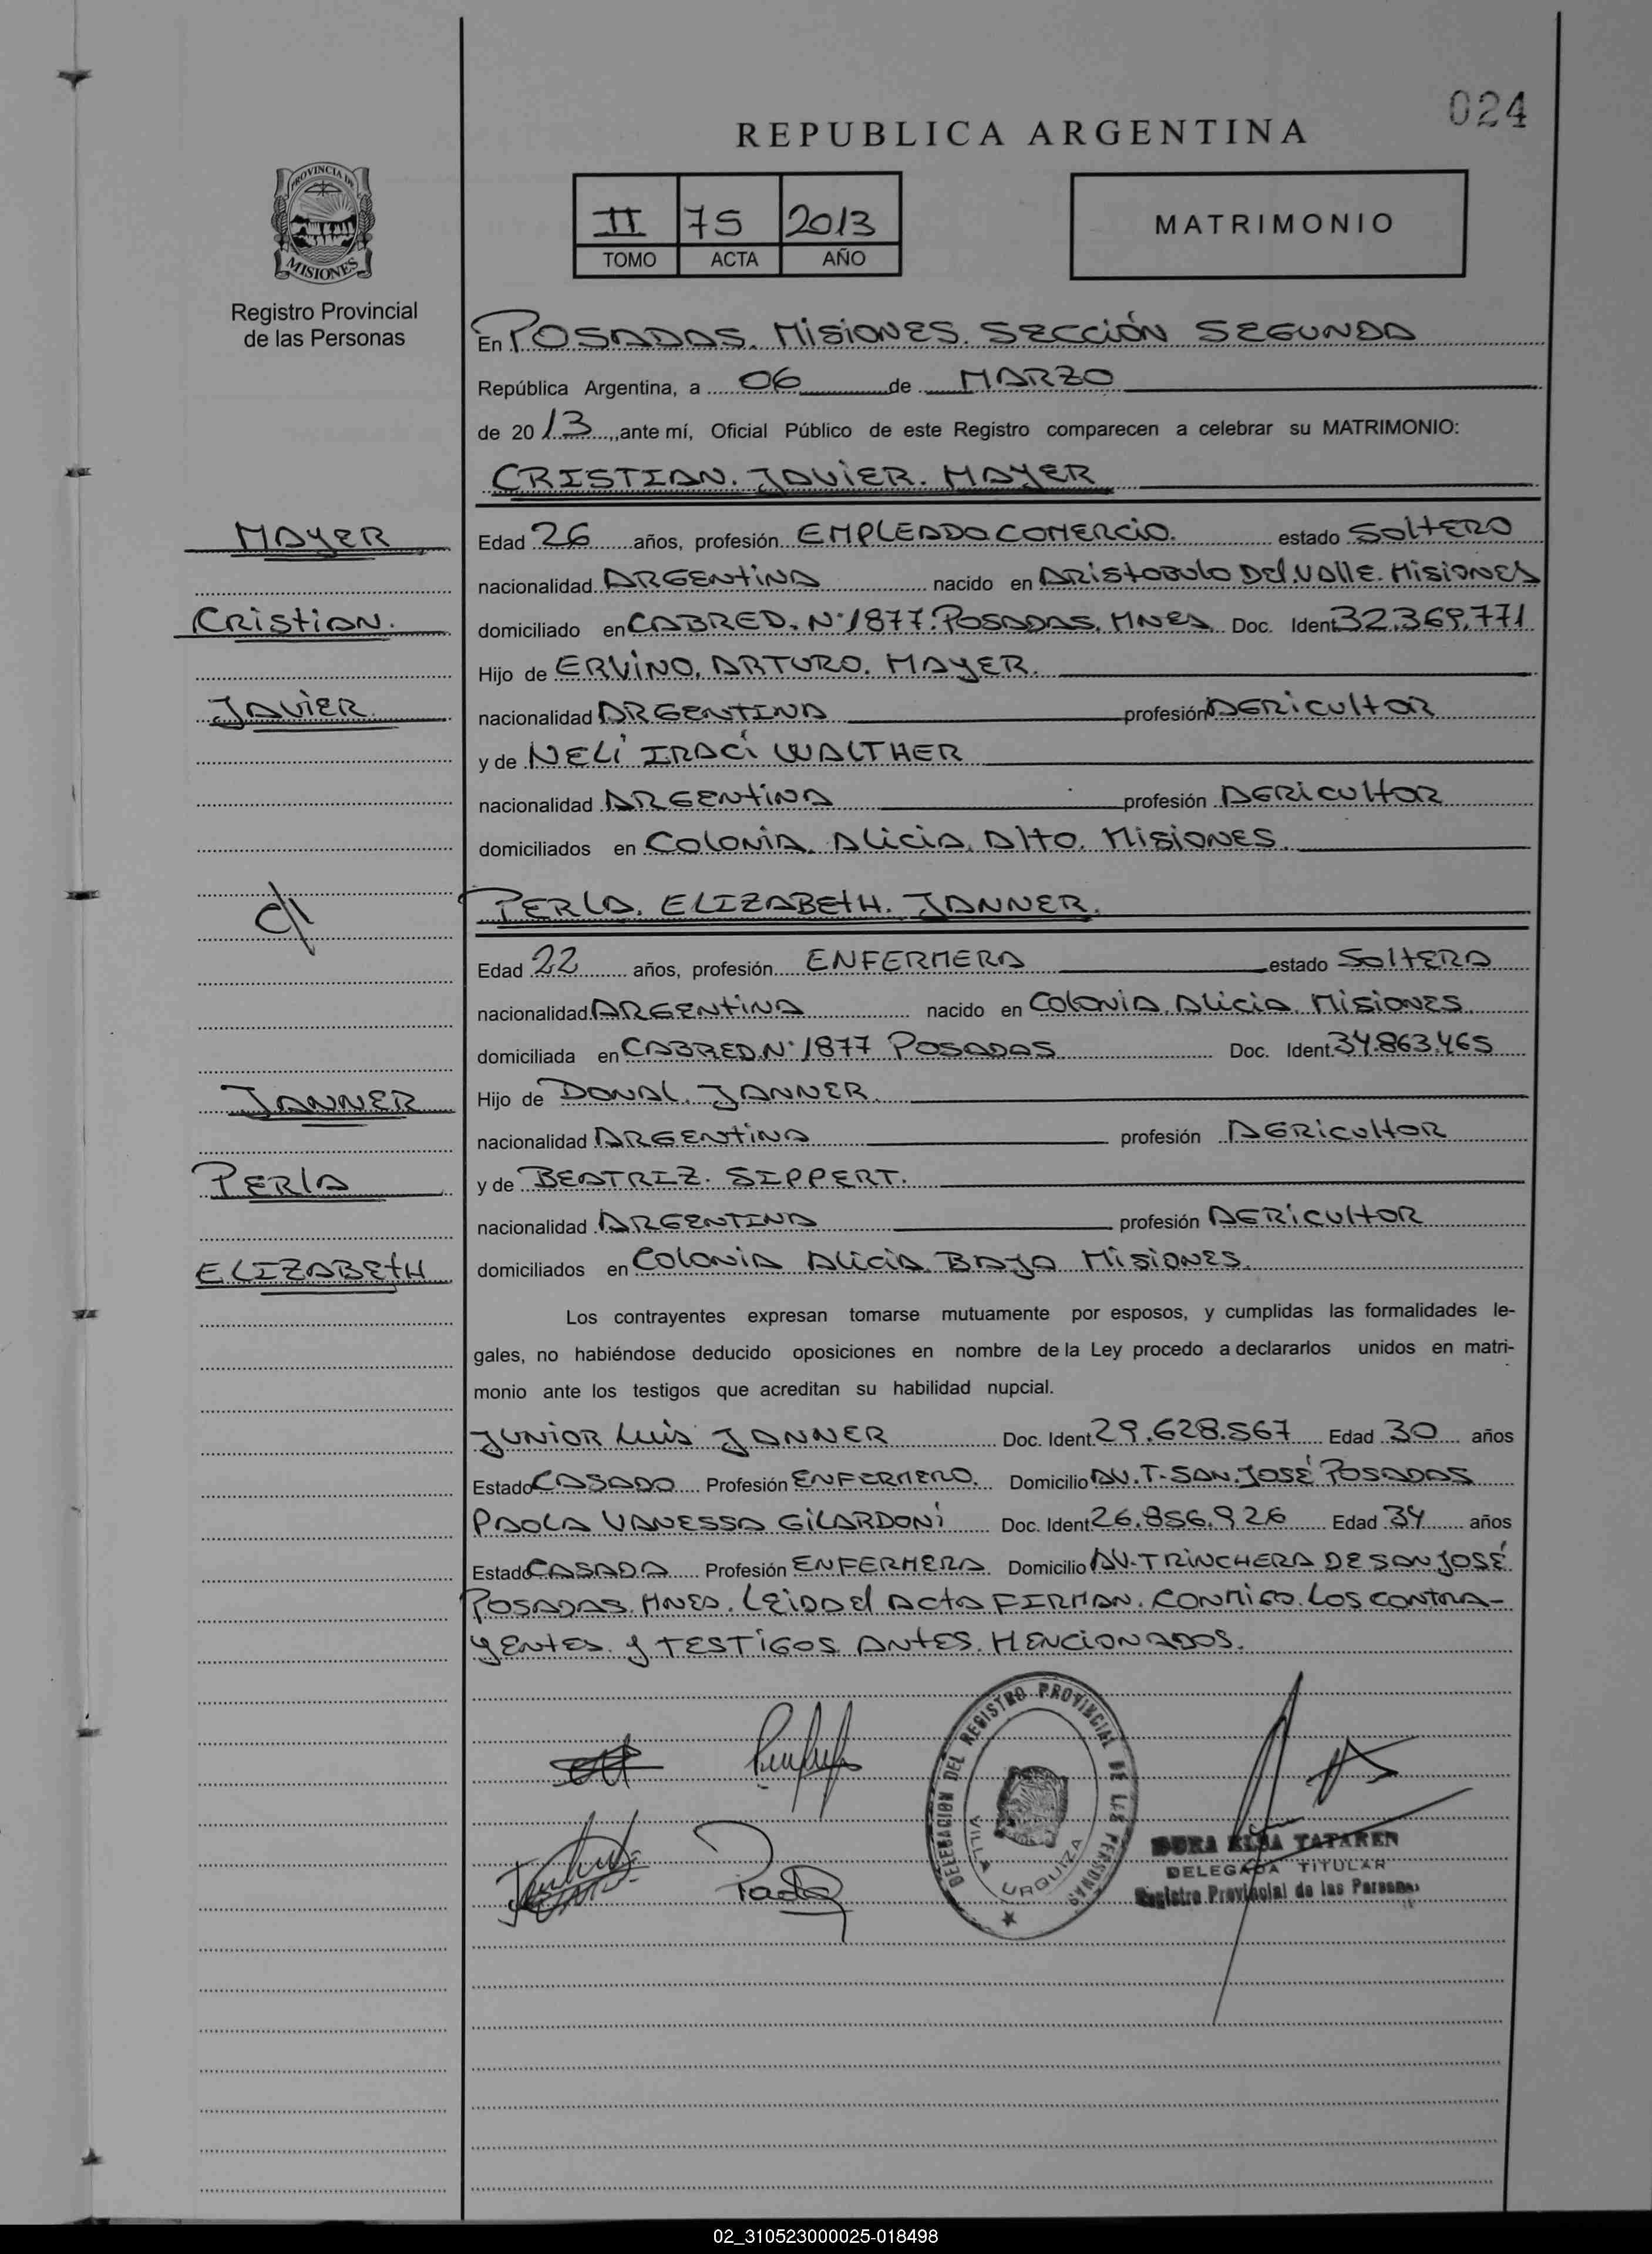 024
REPUBLICA ARGENTINA
PROVINCIA DE
MISIONES
Registro Provincial
de las Personas
II 75 2013
TOMO ACTA AÑO
MATRIMONIO
En POSADAS. MISIONES. SECCIÓN SEGUNDA
República Argentina, a 06 de MARZO
de 20 13, ante mí, Oficial Público de este Registro comparecen a celebrar su MATRIMONIO:
CRISTIAN. JAVIER. MAYER
MAYER
Edad 26 años, profesión EMPLEADO COMERCIO. estado SOLTERO
nacionalidad ARGENTINA nacido en ARISTOBULO DEL VALLE. MISIONES
CRISTIAN.
domiciliado en CABRED. N° 1877. POSADAS. MNES. Doc. Ident 32.369.771
Hijo de ERVINO. ARTURO. MAYER.
JAVIER
nacionalidad ARGENTINA profesión AGRICULTOR
y de NELÍ IRACÍ WALTHER
nacionalidad ARGENTINA profesión AGRICULTOR
domiciliados en COLONIA. ALICIA. ALTO. MISIONES.
c/
PERLA. ELIZABETH. JANNER.
Edad 22 años, profesión ENFERMERA estado SOLTERA
nacionalidad ARGENTINA nacido en COLONIA. ALICIA. MISIONES
domiciliada en CABRED. N° 1877 POSADAS Doc. Ident. 34.863.465
JANNER
Hijo de DONAL. JANNER.
nacionalidad ARGENTINA profesión AGRICULTOR
PERLA
y de BEATRIZ. SIPPERT.
nacionalidad ARGENTINA profesión AGRICULTOR
ELIZABETH
domiciliados en COLONIA ALICIA BAJO MISIONES.
Los contrayentes expresan tomarse mutuamente por esposos, y cumplidas las formalidades le-
gales, no habiéndose deducido oposiciones en nombre de la Ley procedo a declararlos unidos en matri-
monio ante los testigos que acreditan su habilidad nupcial.
JUNIOR LUIS JANNER Doc. Ident. 29.628.567 Edad 30 años
Estado CASADO Profesión ENFERMERO. Domicilio AV. T. SAN. JOSÉ POSADAS
PAOLA VANESSA GILARDONI Doc. Ident. 26.856.926 Edad 34 años
Estado CASADA Profesión ENFERMERA. Domicilio AV. TRINCHERA DE SAN JOSÉ
POSADAS. MNES. LEIDA EL ACTA FIRMAN. CONMIGO. LOS CONTRA-
YENTES. Y TESTIGOS ANTES. MENCIONADOS.
DELEGACION DEL REGISTRO PROVINCIAL DE LAS PERSONAS
VILLA URQUIZA
ELSA TATAREN
DELEGADA TITULAR
Registro Provincial de las Personas
Paola
02_310523000025-018498